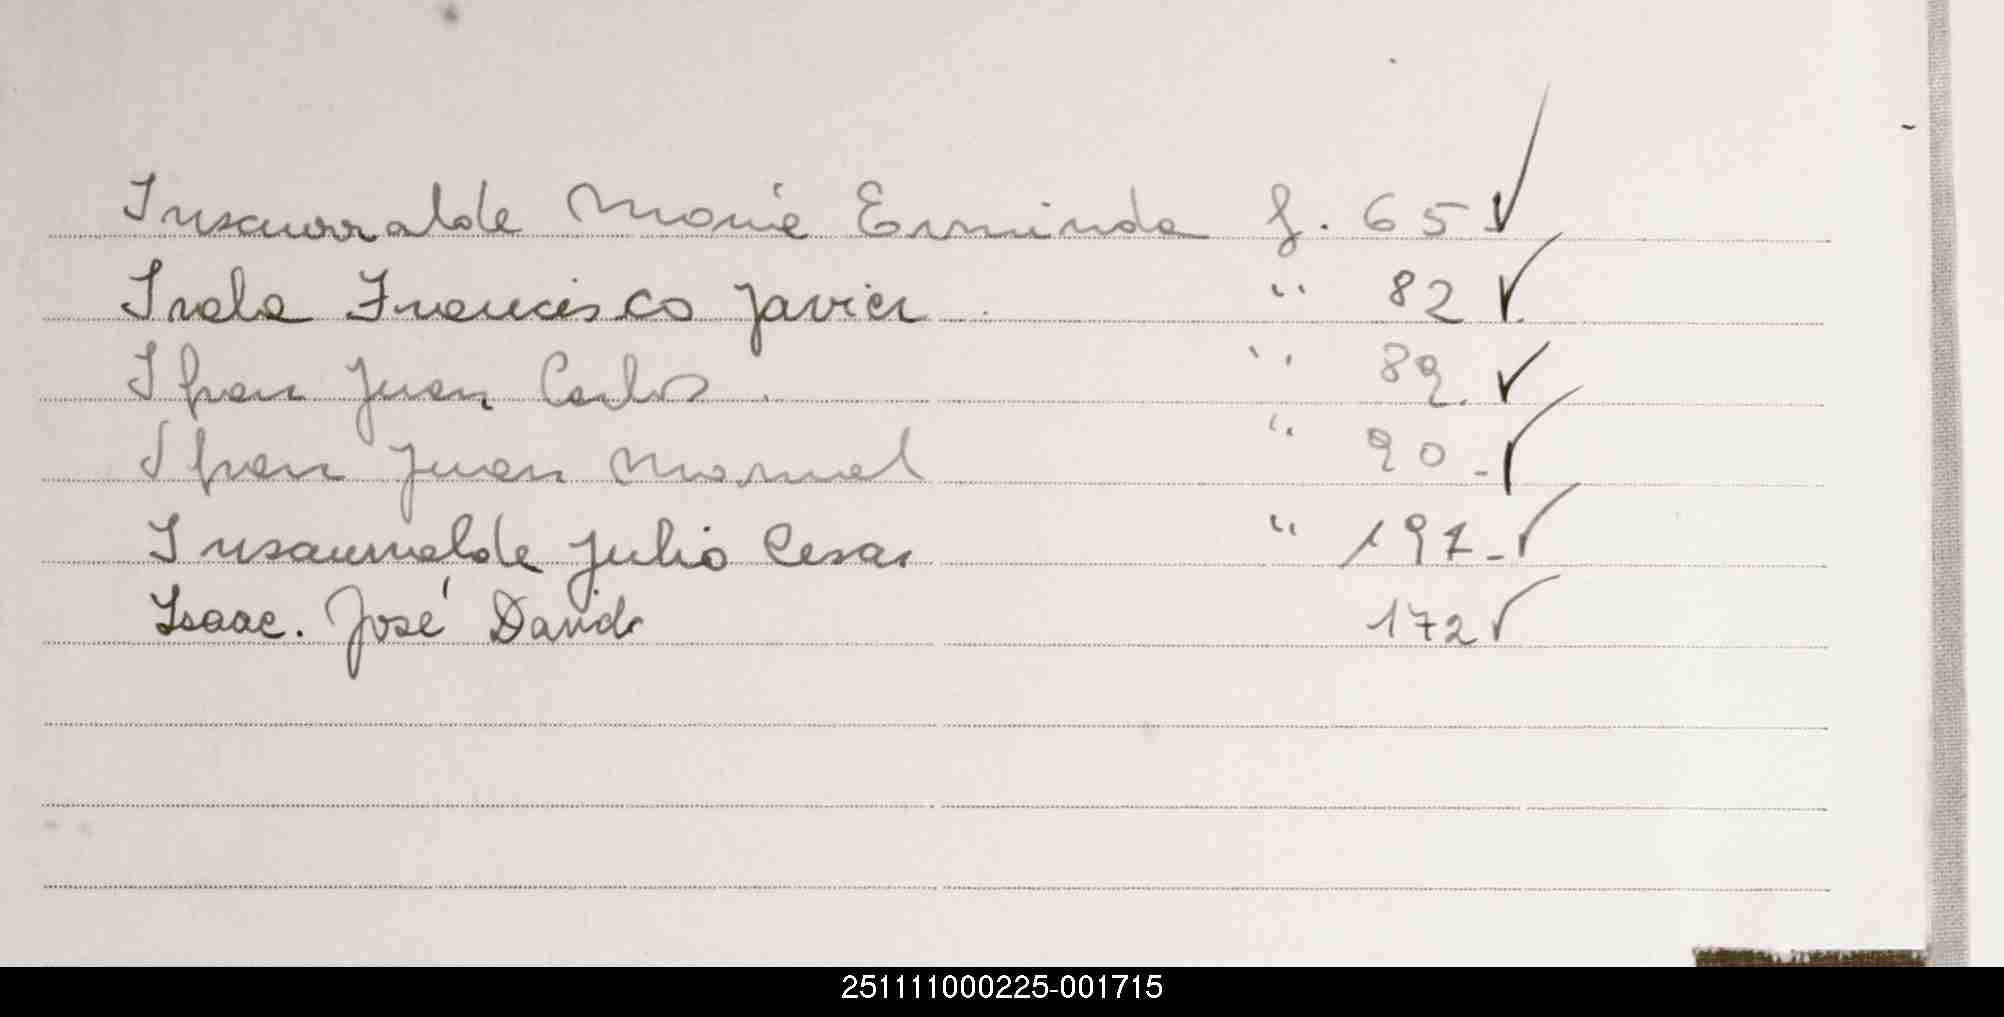 Insaurralde Maria Erminda f. 65 ✓
Irala Francisco Javier . " 82 ✓
Ifran Juan Carlos . " 89. ✓
Ifran Juan Manuel " 90 - ✓
Insaurralde Julio Cesar " 191 - ✓
Isaac. José David 172 ✓
251111000225-001715